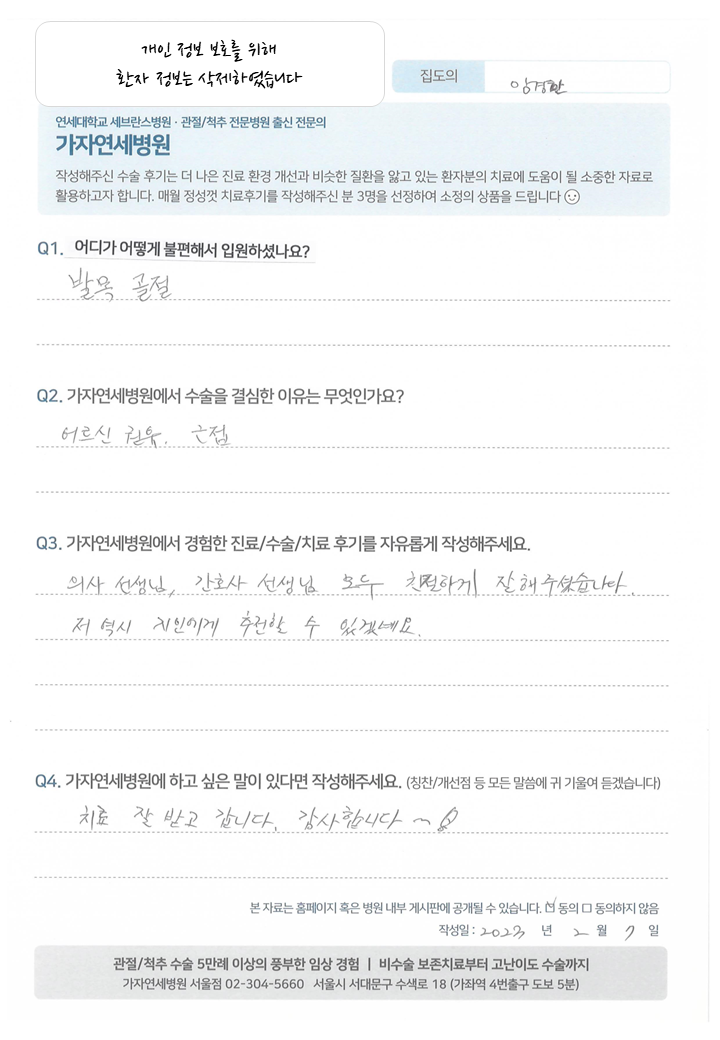 개인 정보 보호를 위해
환자 정보는 삭제하였습니다
집도의
연세대학교 세브란스병원 · 관절/척추 전문병원 출신 전문의
가자연세병원
작성해주신 수술 후기는 더 나은 진료 환경 개선과 비슷한 질환을 앓고 있는 환자분의 치료에 도움이 될 소중한 자료로
활용하고자 합니다. 매월 정성껏 치료후기를 작성해주신 분 3명을 선정하여 소정의 상품을 드립니다
Q1. 어디가 어떻게 불편해서 입원하셨나요?
발목 골절
Q2. 가자연세병원에서 수술을 결심한 이유는 무엇인가요?
어르신 권유. 근접
Q3. 가자연세병원에서 경험한 진료/수술/치료 후기를 자유롭게 작성해주세요.
의사 선생님, 간호사 선생님 모두 친절하게 잘 해주셨습니다.
저 역시 지인에게 추천할 수 있겠네요.
Q4. 가자연세병원에 하고 싶은 말이 있다면 작성해주세요. (칭찬/개선점 등 모든 말씀에 귀 기울여 듣겠습니다)
치료 잘 받고 갑니다. 감사합니다 ~
본 자료는 홈페이지 혹은 병원 내부 게시판에 공개될 수 있습니다. ☑ 동의 □ 동의하지 않음
작성일 : 2023 년 2 월 7 일
관절/척추 수술 5만례 이상의 풍부한 임상 경험 | 비수술 보존치료부터 고난이도 수술까지
가자연세병원 서울점 02-304-5660 서울시 서대문구 수색로 18 (가좌역 4번출구 도보 5분)